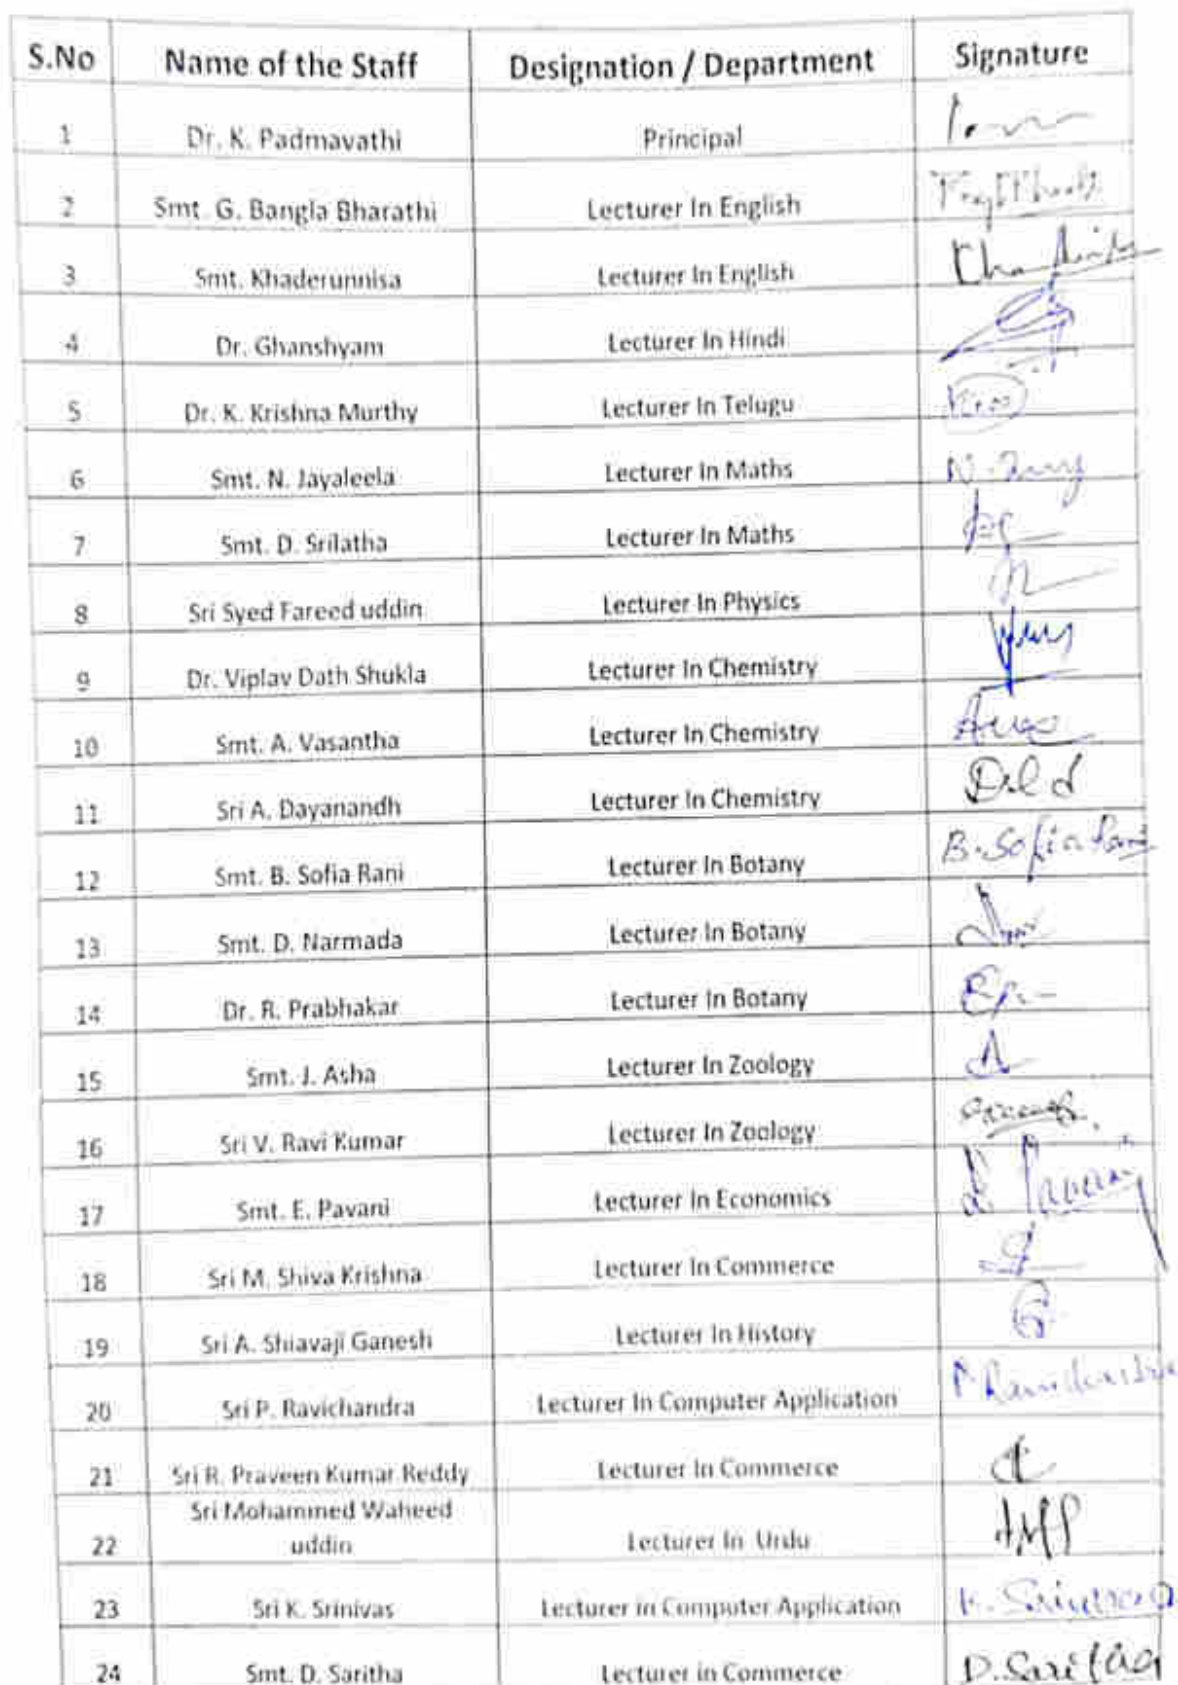 S.No Name of the Staff Designation / Department Signature
1 Dr. K. Padmavathi Principal
2 Smt. G. Bangla Bharathi Lecturer In English
3 Smt. Khaderunnisa Lecturer In English
4 Dr. Ghanshyam Lecturer In Hindi
5 Dr. K. Krishna Murthy Lecturer In Telugu
6 Smt. N. Jayaleela Lecturer In Maths
7 Smt. D. Srilatha Lecturer In Maths
8 Sri Syed Fareed uddin Lecturer In Physics
9 Dr. Viplav Dath Shukla Lecturer In Chemistry
10 Smt. A. Vasantha Lecturer In Chemistry
11 Sri A. Dayanandh Lecturer In Chemistry
12 Smt. B. Sofia Rani Lecturer In Botany B. Sofia Rani
13 Smt. D. Narmada Lecturer In Botany
14 Dr. R. Prabhakar Lecturer In Botany
15 Smt. J. Asha Lecturer In Zoology
16 Sri V. Ravi Kumar Lecturer In Zoology
17 Smt. E. Pavani Lecturer In Economics E. Pavani
18 Sri M. Shiva Krishna Lecturer In Commerce
19 Sri A. Shiavaji Ganesh Lecturer In History
20 Sri P. Ravichandra Lecturer In Computer Application P Ravichandra
21 Sri R. Praveen Kumar Reddy Lecturer In Commerce
Sri Mohammed Waheed
22 uddin Lecturer In Urdu
23 Sri K. Srinivas Lecturer in Computer Application K. Srinivas
24 Smt. D. Saritha Lecturer in Commerce D. Saritha